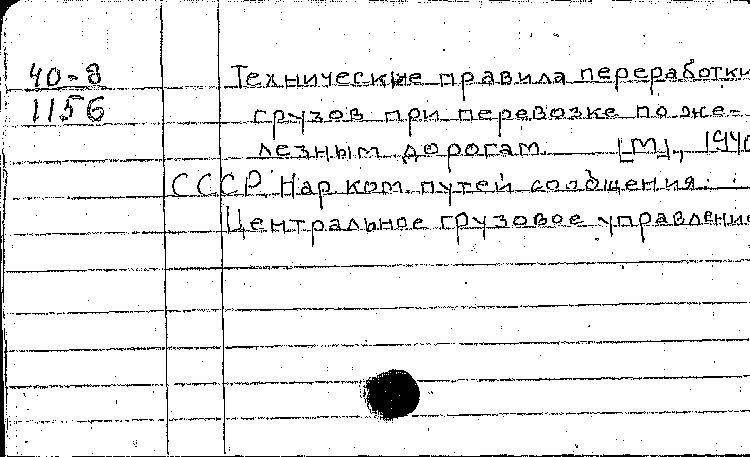 40-8
1156
Технические правила переработки
грузов при перевозке по же-
лезным дорогам. [М], 1940
СССР. Нар. ком. путей сообщения.
Центральное грузовое управление